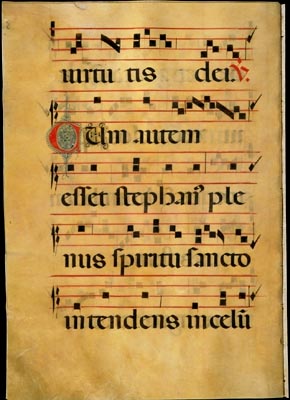 uirtu tis dei. ℣.
Cum autem
esset stephan⁹ ple
nus spiritu sancto
intendens incelū